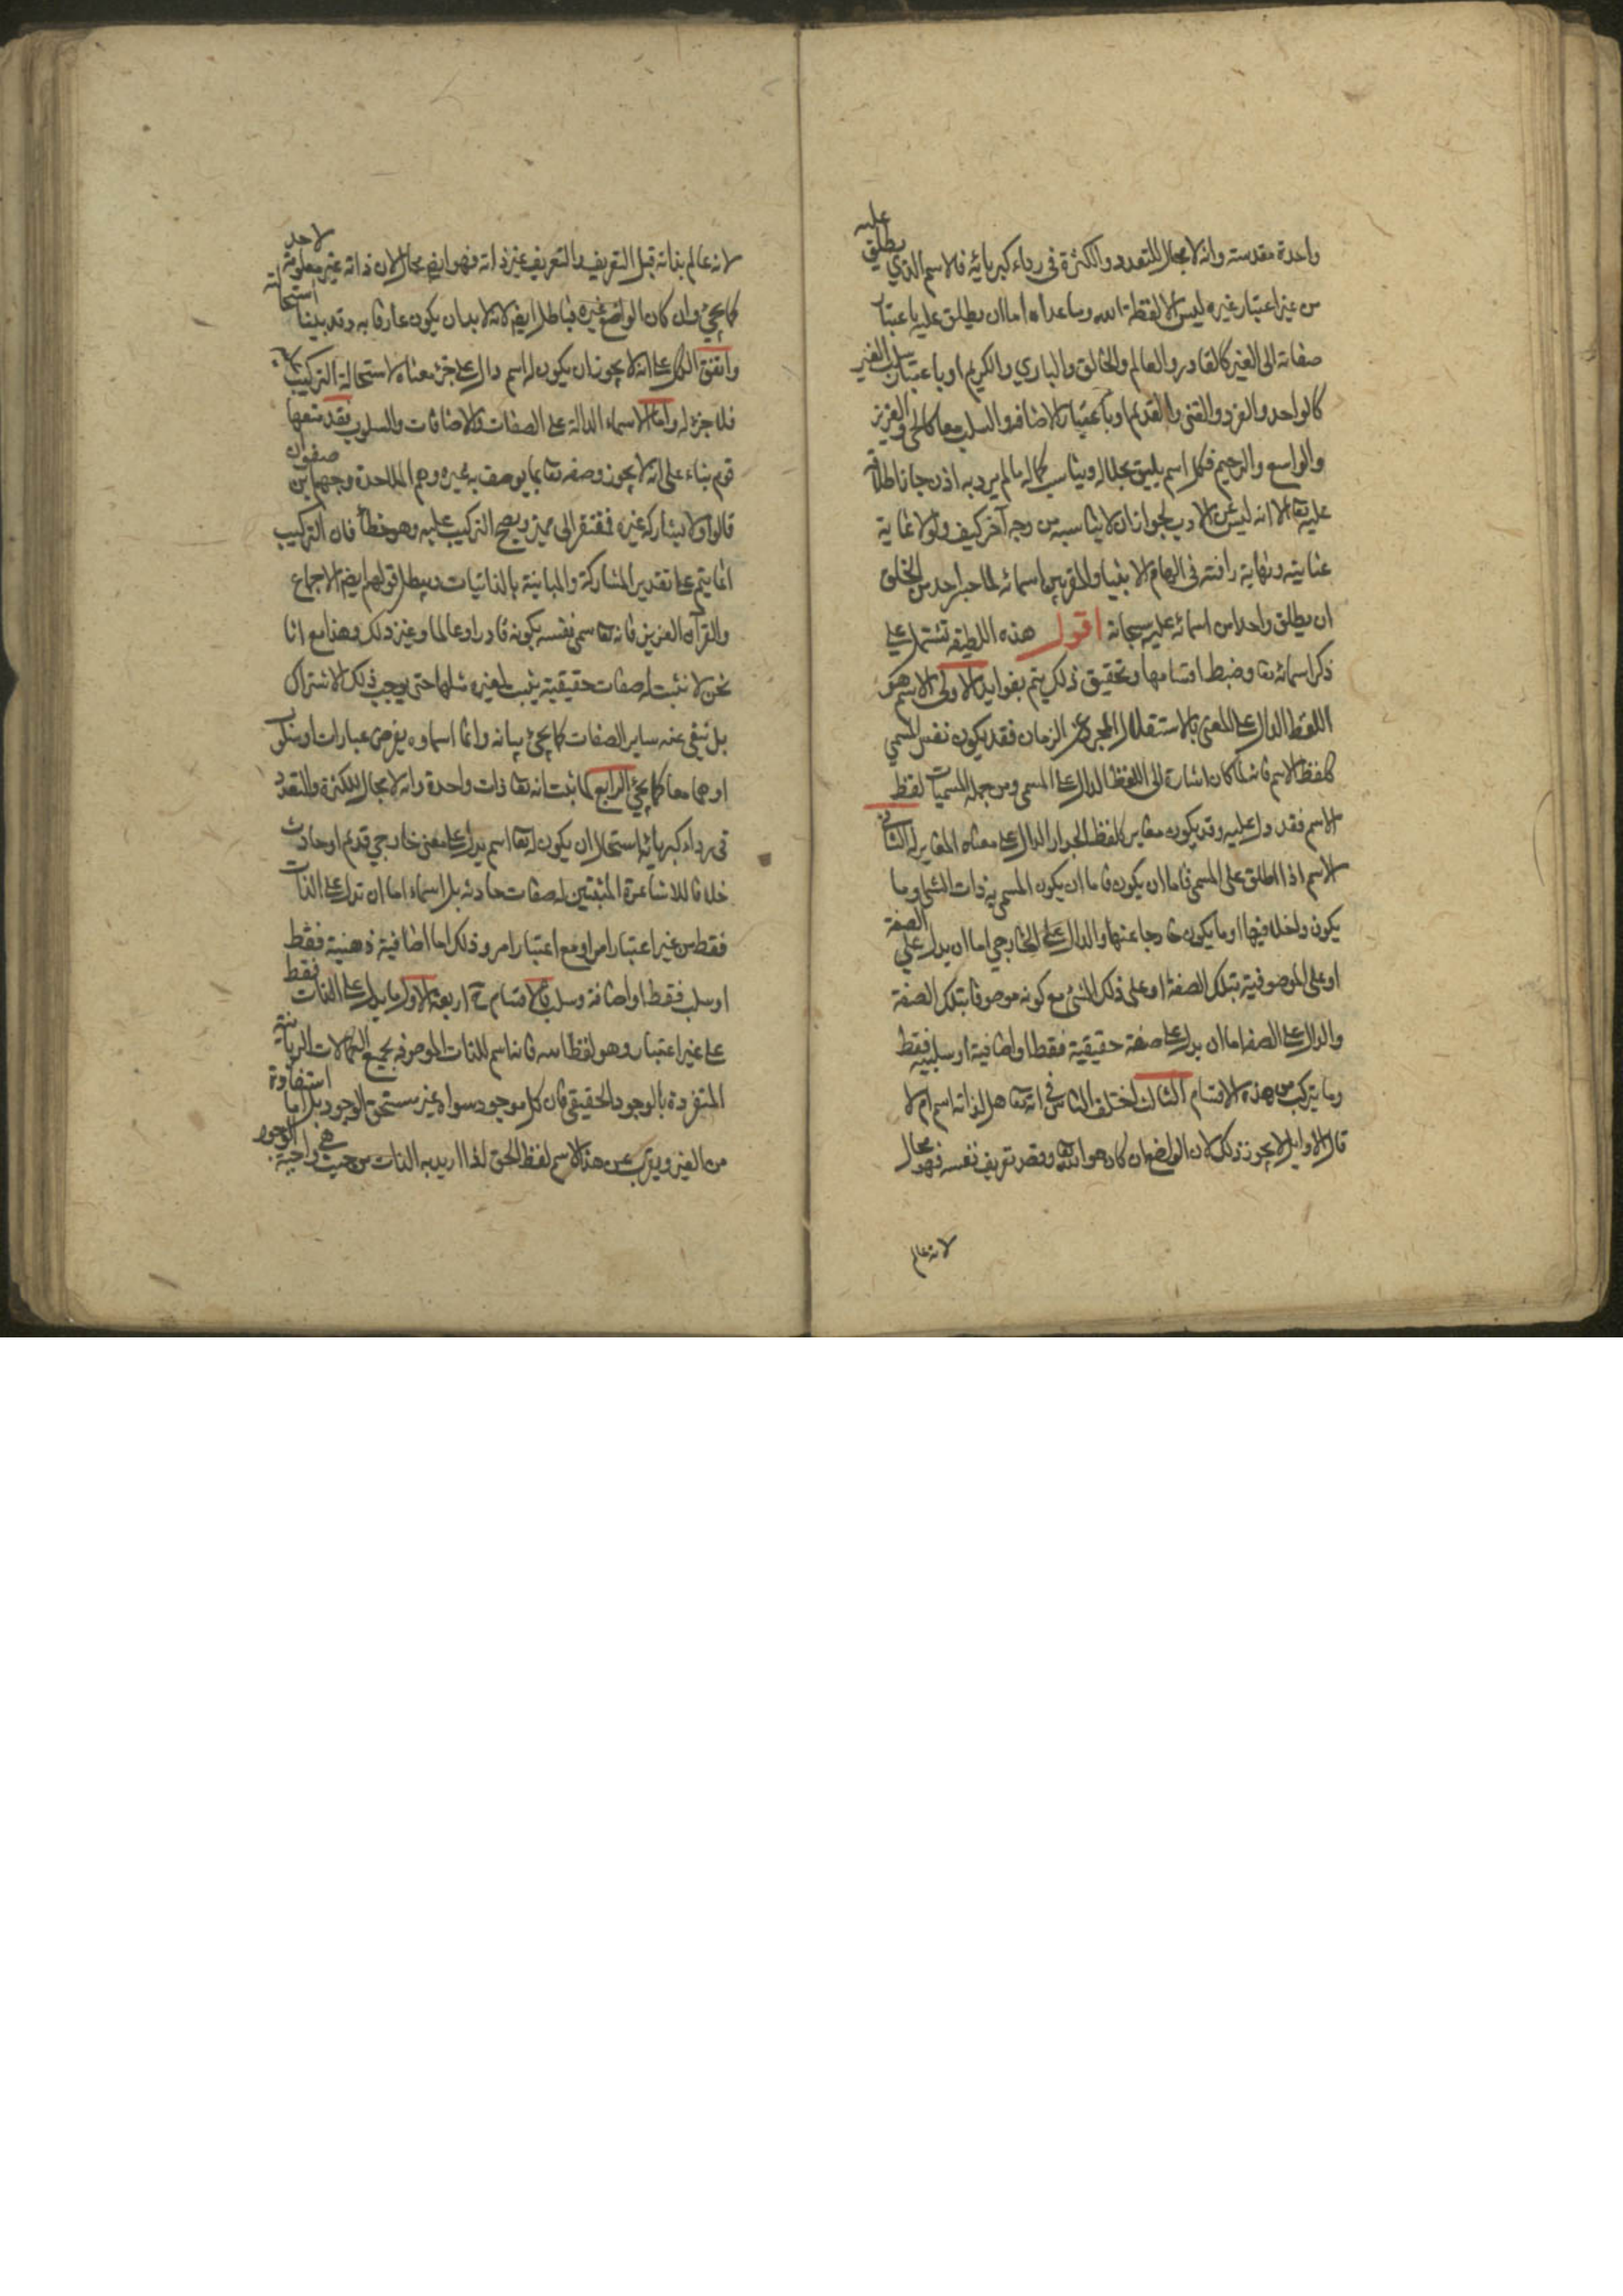 واحدة مقدسة وانه لا مجال للتعدد والكثرة في رداء كبريائه فالاسم الذي يطلق عليه
من غير اعتبار غيره ليس الا لفظة الله وما عداه اما ان يطلق عليه باعتبار
صفاته الى الغير كالقادر والعالم والخالق والباري والكريم او باعتبار سلب الغير
كالواحد والفرد والغنى والقديم او باعتبار الاضافة والسلب معا كالحي والعزيز
والواسع والرحيم فكل اسم يليق بجلاله ويناسب كماله مما لم يرد به اذن جاز اطلاقه
عليه تعا الا انه ليس من الادب لجواز ان لا يناسبه من وجه آخر كيف ولولا غاية
عنايته ونهاية رافته في الهام الانبيا والمقربين اسمائه لما جسر احد من الخلق
ان يطلق واحدا من اسمائه عليه سبحانه اقول هذه اللطيفة تشتمل على
ذكر اسمائه تعا وضبط اقسامها وتحقيق ذلك يتم بفوايد الاولى الاسم هو
اللفظ الدال على المعنى بالاستقلال المجرد عن الزمان فقد يكون نفس المسمى
كلفظ الاسم فانه لما كان اشارة الى اللفظ الدال على المسمى ومن جملة المسميات لفظ
الاسم فقد دل عليه وقد يكون مغاير كلفظ الجدار الدال على معناه المغاير له الثاني
الاسم اذا اطلق على المسمى فاما ان يكون المسمى به ذات الشئ او ما
يكون داخلا فيها او ما يكون خارجا عنها والدال على الخارجي اما ان يدل على الصفة
او على الموصوفية بتلك الصفة او على ذلك الشئ مع كونه موصوفا بتلك الصفة
والدال على الصفة اما ان يدل على صفة حقيقية فقط او اضافية او سلبية فقط
وما يتركب من هذه الاقسام الثالث اختلف الناس في انه تعا هل لذاته اسم ام لا
قال الاوايل لا يجوز ذلك لان الواضع ان كان هو الله تعا وقصد تعريف نفسه فهو محال
لانه عالم
لانه عالم بذاته قبل التعريف والتعريف غير ذاته فهو ايضا محال لان ذاته غير معلومة لاحد
كما يجئ وان كان الواضع غيره فباطل ايضا لانه لابد ان يكون عارفا به وقد بينا استحالته
واتفق الكل على انه لا يجوز ان يكون له اسم دال على جزء معناه لاستحالة التركيب عليه
فلا جزء له واما الاسماء الدالة على الصفات والاضافات والسلوب فقد منعها
قوم بناء على انه لا يجوز وصفه تعا بما يوصف به غيره وهم الملاحدة وجهم بن صفوان
قالوا والا يشاركه غيره فيفتقر الى مميز ويصح التركيب عليه وهو خطأ فان التركيب
انما يتم على تقدير المشاركة والمباينة بالذاتيات ويبطل قولهم ايضا الاجماع
والقرآن العزيز فانه تعا سمى نفسه بكونه قادرا وعالما وغير ذلك وهذا مع انا
نحن لا نثبت له صفات حقيقية يثبت لغيره مثلها حتى يوجب ذلك الاشتراك
بل ننفي عنه ساير الصفات كما يجئ بيانه وانما اسماوه بفرض عبارات او سلوب
او هما معا كما يجئ الرابع لما ثبت انه تعا ذات واحدة وانه لا مجال للكثرة والتعدد
في رداء كبريائه استحال ان يكون له تعا اسم يدل على معنى خارجي قديم او حادث
خلافا للاشاعرة المثبتين له صفات حادثة بل اسماءه اما ان تدل على الذات
فقط من غير اعتبار امر او مع اعتبار امر وذلك اما اضافية ذهنية فقط
او سلب فقط او اضافة وسلب فالاقسام ح اربعة الاول ما يدل على الذات فقط
على غير اعتبار وهو لفظ الله فانه اسم للذات الموصوفة بجميع الكمالات الربانية
المتفردة بالوجود الحقيقي فان كل موجود سواه غير مستحق الوجود بل انما استفادة
من الغير ويقرب من هذا الاسم لفظ الحق اذا اريد به الذات من حيث هي واجبة الوجود